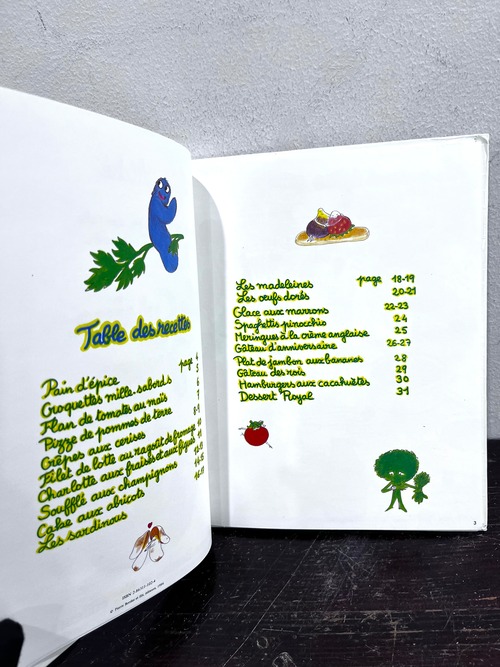 Table des recettes
page 4
Pain d'épice
Croquettes mille-sabords
Flan de tomates au maïs
Pizze de pommes de terre
Crêpes aux cerises
Filet de lotte au ragoût de fromage
Charlotte aux fraises et aux figues
Soufflé aux champignons
Cake aux abricots
Les sardinous
Les madeleines page 18-19
Les œufs dorés 20-21
Glace aux marrons 22-23
Spaghettis pinocchio 24
Meringues à la crème anglaise 25
Gâteau d'anniversaire 26-27
Plat de jambon aux bananes 28
Gâteau des rois 29
Hamburgers aux cacahuètes 30
Dessert Royal 31
3